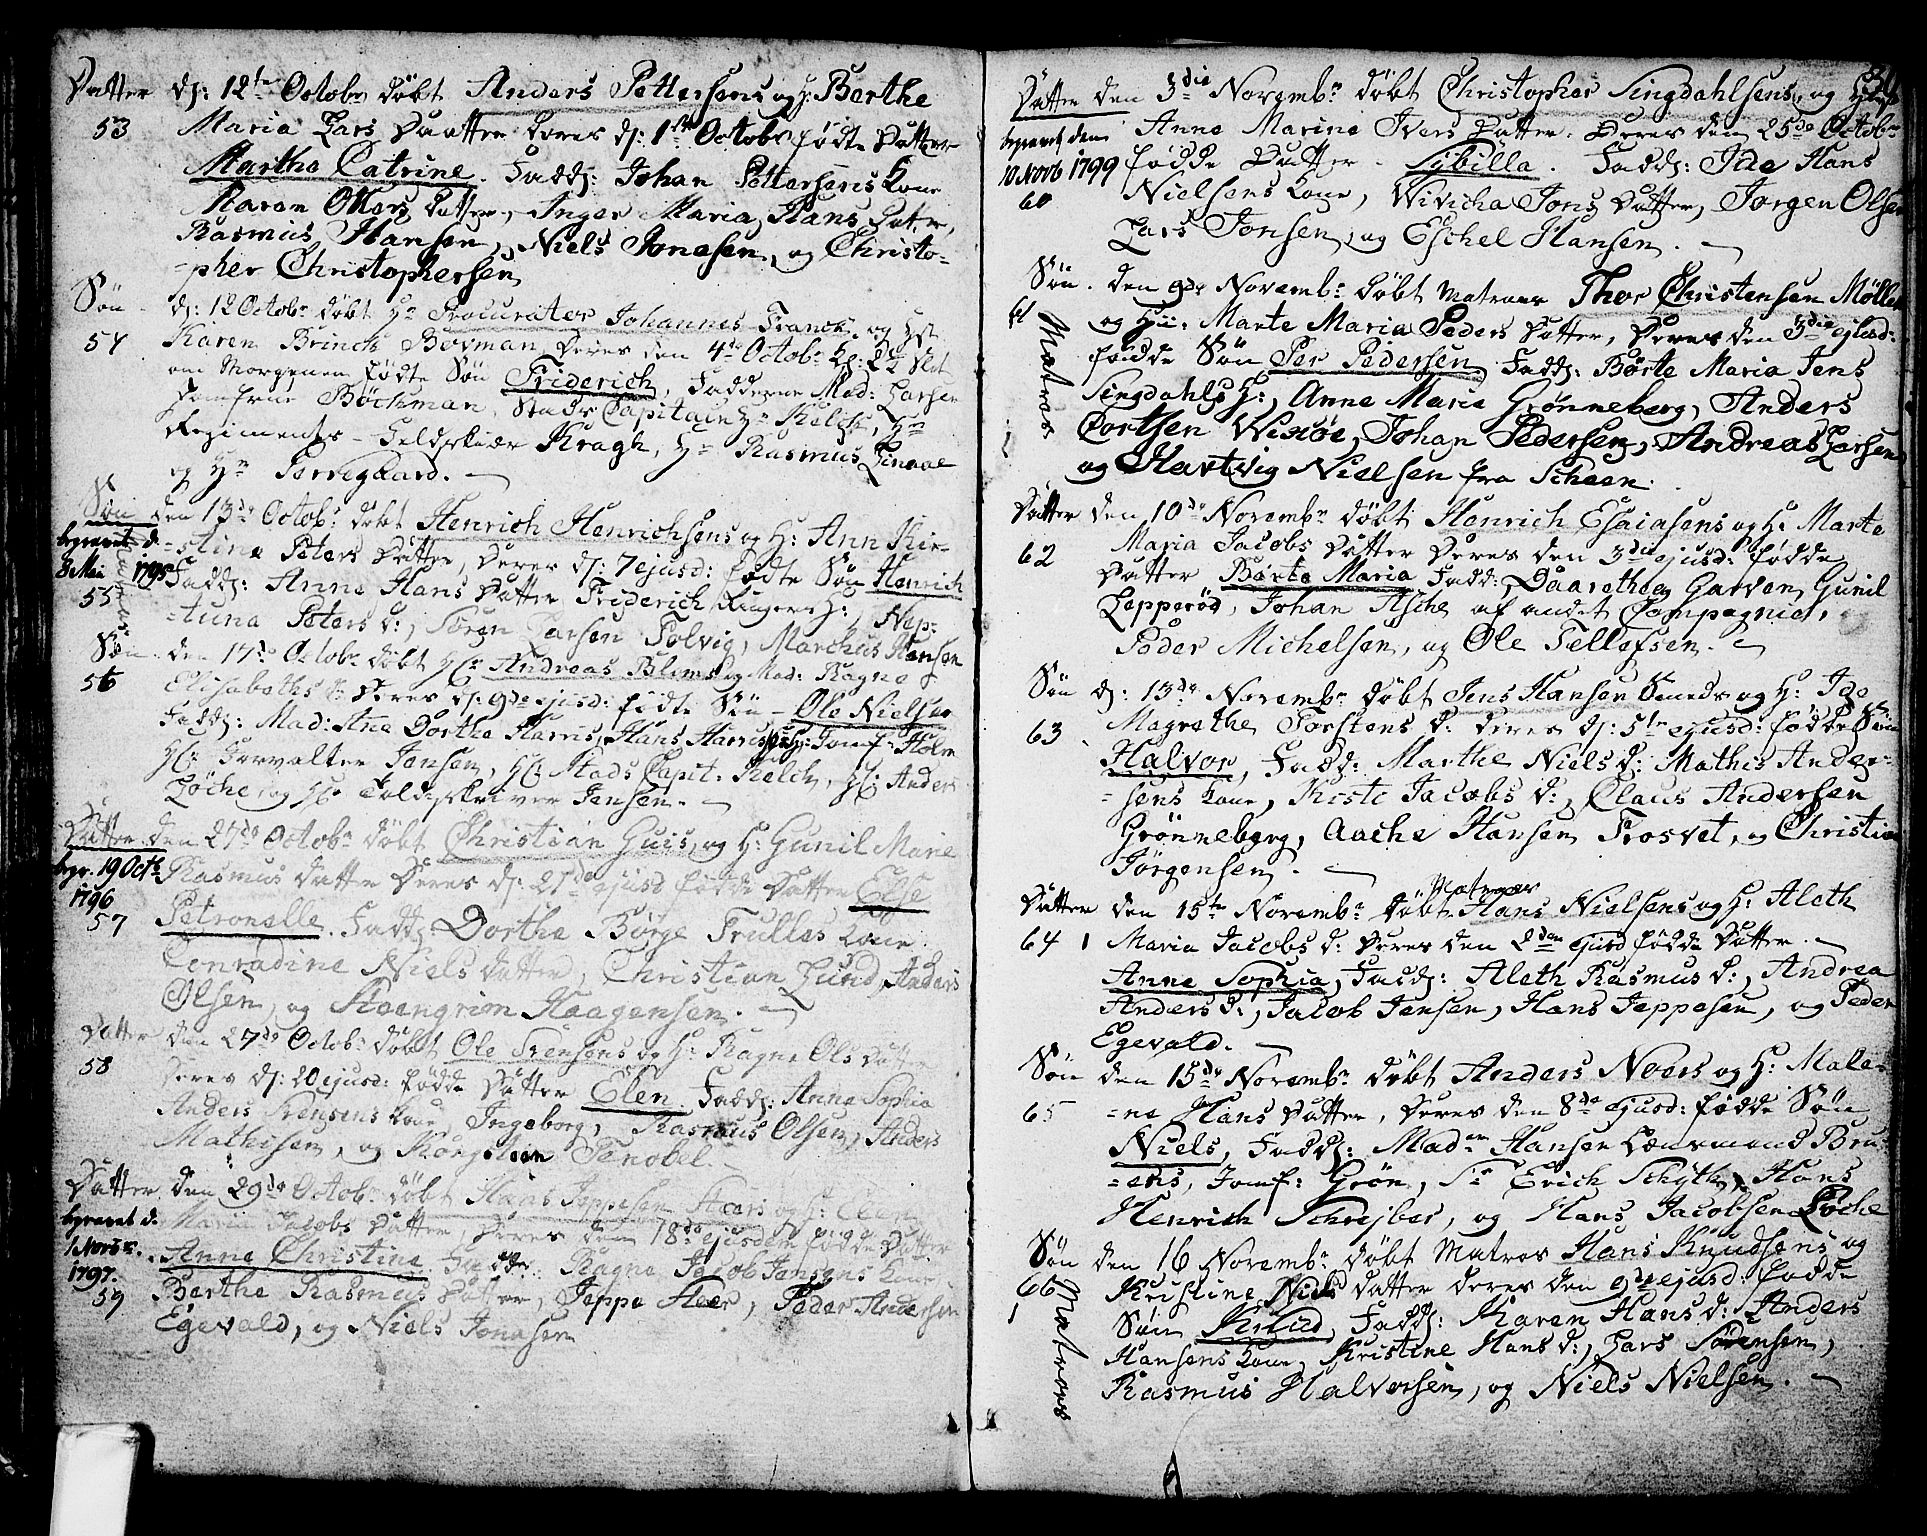 Datter d: 12te Octobr döbt Anders Pettersens og H: Berthe
53 Maria Lars Daatter deres d: 1ste Octobr födte Datter
Martha Catrine. Fadd: Johan Pettersens Kone
Maren Olsers Datter, Inger Maria Hans Dater,
Rasmus Hansen, Niels Jonasen, og Christo-
=pher Christophersen
Sön d: 12 Octobr döbt Hr Procurator Johannes Franck og Hst
54 Karen Brinch Borman deres den 4de Octobr Kl: 2½ Slet
om Morgenen födte Sön Friderich, Fadderne Mad: Larsen
Jomfrue Böckman, Stads Capitain Hr Kelch, Hr
Regiments-Feldskiær Kragh, Hr Rasmus Linaae
og Hr Torregaard.
Sön den 13de Octobr döbt Henrich Henrichsens og H: Ann Kir-
begravet d. =stine Peters Datter, deres d: 7 ejusd: födte Sön Henrich
8 Mai 1795 Fadd: Anne Hans Datter Friderich Rugers H:, Nep-
55 =tuna Peters d:, Sören Larsen Solvig, Marchus Hansen
Sön den 17de Octobr döbt Hr: Andreas Bloms og Mad: Ragne
56 Elisabeths d: deres d: 9de ejusd: födte Sön - Ole Nielsen
Fadd: Mad: Ane Dorthe Harris, Hans Harris H: Jomf: Holm
Hr: Forvalter Jensen, Hr: Stads Capit: Kelch, Hr: Anders
Löche, og Hr Toldskriver Jensen.
Datter den 27de Octobr döbt Christian Guis, og H: Gunil Marie
begr. 19 Octb. Rasmus datter deres d: 21de ejusd födde Datter Else
1796
57 Petronelle. Fadd: Dorthe Börge Trulles Kone
Conradine Niels datter, Christian Lund, Anders
Olsen, og Steengrim Haagensen.
Datter den 27de Octobr döbt Ole Svensens og H: Ragne Ols Datter
58 deres d: 20 ejusd: födde Datter Elen. Fadd: Anne Sophia
Anders Svensens Kone, Ingeborg, Rasmus Olsen, Anders
Mathisen, og Tenobel.
Datter den 29de Octobr döbt Hans Jeppesen Heers og H: Elen
begravet d. Maria Jacobs Datter, deres den 18de ejusdem födde Datter
1 Novbr. Anne Christine. Fadder Ragne Jacob Jensens Kone
1797.
59 Berthe Rasmus Datter, Jeppe Heer, Peder Andersen
Egevald, og Niels Jonasen
Datter den 3die Novembr döbt Christopher Singdahlsens, og Hst
begravet den Anne Marine Ivers Datter. Deres den 25de Octobr
10 Novb 1799 födde Datter - Sybilla. Fadd: Ide Hans
60 Nielsens Kone, Wivicha Jons Datter, Jorgen Olsen
Lars Jonsen, og Eschel Hansen.
Sön den 9de Novembr döbt Matroes Thor Christensen Möller
61 og Hu: Marte Maria Peders Datter, deres den 3die ejusd:
Matros
födde Sön Per Pedersen. Fadd: Börte Maria Jens
Singdahls H:, Anne Marie Grönneberg, Anders
Cortsen Wixöe, Johan Pedersen, Andreas Larsen
og Hartvig Nielsen fra Scheen.
Datter den 10de Novembr döbt Henrich Esaiasens og H: Marte
62 Maria Jacobs Datter deres den 3die ejusd: födde
Datter Börte Maria Fadd: Daarethe Garven, Gunil
Lepperöd, Johan Asche af andet Compagnie,
Peder Michelsen, og Ole Tellefsen.
Sön d: 13de Novembr döbt Jens Hansen Smeds og H: Ide
63 Magrethe Torstens d: deres d: 5te ejusd: födde Sön
Halvor, Fadd: Marthe Niels d: Mathis Ander-
=sens Kone, Kirsti Jacobs d:, Claus Andersen
Grönneberg, Aache Hansen Trosvet, og Christian
Jörgensen.
Matroes
Datter den 15te Novembr döbt Hans Nielsens og H: Aleth
64 1 Maria Jacobs d: deres den 2den ejusd födde Datter
Anne Sophia, Fadd: Aleth Rasmus d:, Andrea
Anders d:, Jacob Jensen, Hans Jeppesen, og Peder
Egevald.
Sön den 15de Novembr döbt Anders Noers og H: Male-
65 =ne Hans Datter, deres den 8de ejusd: födde Sön
Niels, Fadd: Madm Hansen Lensmand Bru-
=ens, Jomf: Grön, Sr Erich Schytte, Hans
Henrich Schrejber, og Hans Jacobsen Löche
Sön den 16 Novembr döbt Matros Hans Knudsens og
66 Kristine Niels datter deres den 9de ejusd: födde
1 Matroes
Sön Knud, Fadd: Karen Hans d: Anders
Hansens Kone, Kristine Hans d:, Lars Sörensen,
Rasmus Halvorsen, og Niels Nielsen.